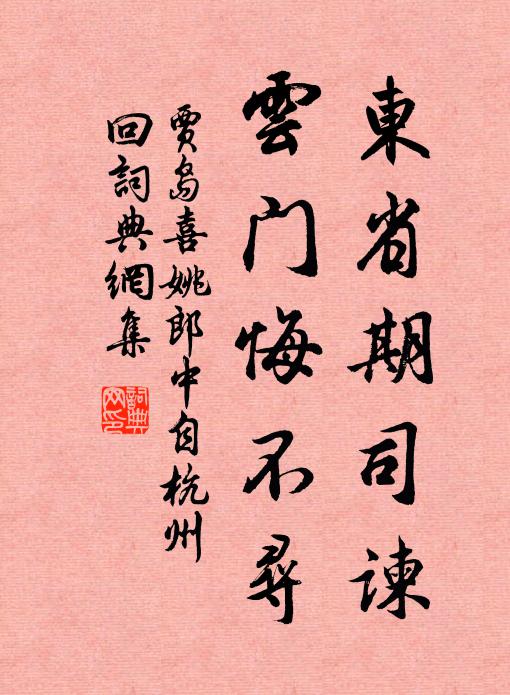 東省期司諫
雲门悔不尋
賈島喜姚郎中自杭州
回詞典網集
詞典
网印